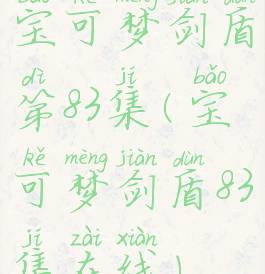 bǎo kě mèng jiàn dùn
宝可梦剑盾
dì jí bǎo
第83集(宝
kě mèng jiàn dùn
可梦剑盾83
jí zài xiàn
集在线)